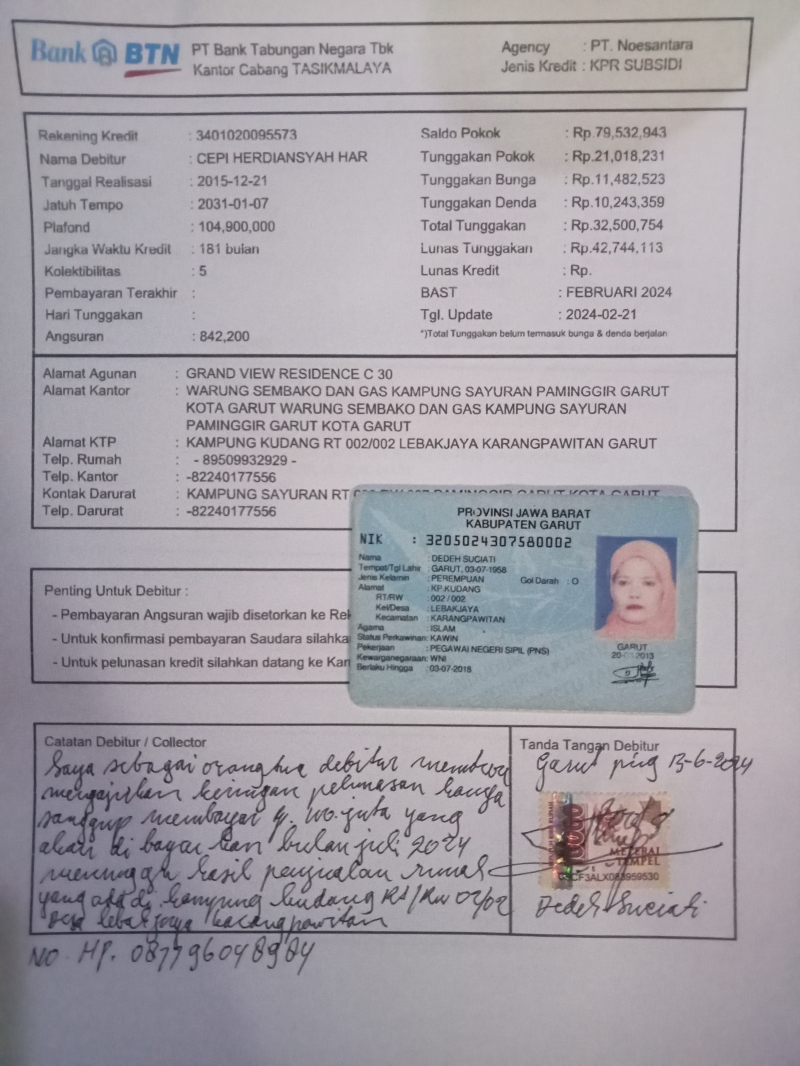 Bank BTN
PT Bank Tabungan Negara Tbk
Kantor Cabang TASIKMALAYA
Agency : PT. Noesantara
Jenis Kredit : KPR SUBSIDI
Rekening Kredit : 3401020095573
Nama Debitur : CEPI HERDIANSYAH HAR
Tanggal Realisasi : 2015-12-21
Jatuh Tempo : 2031-01-07
Plafond : 104,900,000
Jangka Waktu Kredit : 181 bulan
Kolektibilitas : 5
Pembayaran Terakhir :
Hari Tunggakan :
Angsuran : 842,200
Saldo Pokok : Rp.79,532,943
Tunggakan Pokok : Rp.21,018,231
Tunggakan Bunga : Rp.11,482,523
Tunggakan Denda : Rp.10,243,359
Total Tunggakan : Rp.32,500,754
Lunas Tunggakan : Rp.42,744,113
Lunas Kredit : Rp.
BAST : FEBRUARI 2024
Tgl. Update : 2024-02-21
*)Total Tunggakan belum termasuk bunga & denda berjalan
Alamat Agunan : GRAND VIEW RESIDENCE C 30
Alamat Kantor : WARUNG SEMBAKO DAN GAS KAMPUNG SAYURAN PAMINGGIR GARUT
KOTA GARUT WARUNG SEMBAKO DAN GAS KAMPUNG SAYURAN
PAMINGGIR GARUT KOTA GARUT
Alamat KTP : KAMPUNG KUDANG RT 002/002 LEBAKJAYA KARANGPAWITAN GARUT
Telp. Rumah : - 89509932929 -
Telp. Kantor : -82240177556
Kontak Darurat : KAMPUNG SAYURAN RT PAMINGGIR GARUT KOTA GARUT
Telp. Darurat : -82240177556
PROVINSI JAWA BARAT
KABUPATEN GARUT
NIK : 3205024307580002
Nama : DEDEH SUCIATI
Tempat/Tgl Lahir : GARUT, 03-07-1958
Jenis Kelamin : PEREMPUAN Gol Darah : O
Alamat : KP.KUDANG
RT/RW : 002/002
Kel/Desa : LEBAKJAYA
Kecamatan : KARANGPAWITAN
Agama : ISLAM
Status Perkawinan: KAWIN
Pekerjaan : PEGAWAI NEGERI SIPIL (PNS)
Kewarganegaraan: WNI
Berlaku Hingga : 03-07-2018
GARUT
Penting Untuk Debitur :
- Pembayaran Angsuran wajib disetorkan ke Rek
- Untuk konfirmasi pembayaran Saudara silahka
- Untuk pelunasan kredit silahkan datang ke Kan
Catatan Debitur / Collector
Saya sebagai orangtua debitur
mengajukan keringan pelunasan hanya
sanggup membayar juta yang
akan di bayar kan bulan juli 2024
menunggu hasil penjualan rumah
yang ada di kampung kudang Rt/Rw 02/02
Desa lebak jaya karangpawitan
NO HP. 087796048984
Tanda Tangan Debitur
Garut 13-6-2024
METERAI
TEMPEL
Dedeh Suciati